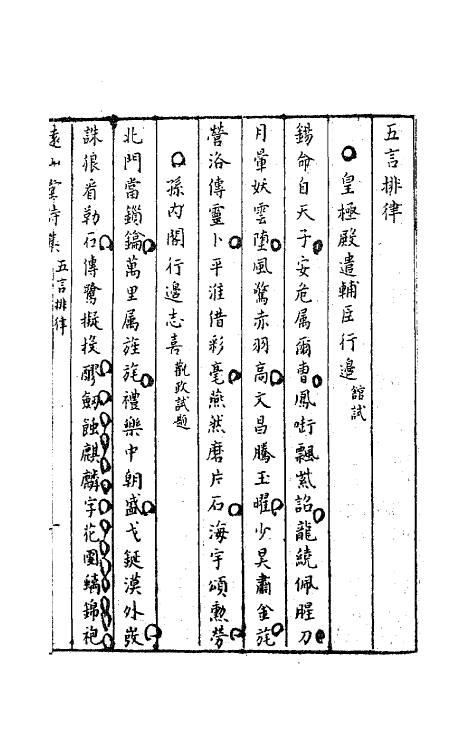 五言排律
皇極殿遣輔臣行邊館試
錫命自天子安危属爾曹鳳啣飄紫詔龍繞佩腥刀
月暈妖雲墮風驚赤羽高文昌騰玉曜少昊肅金旄
營洛傳靈卜平淮借彩毫燕然磨片石海宇頌勲勞
孫内閣行邊志喜觀政試題
北門當鎖鑰萬里属旌旄禮樂中朝盛戈鋋漠外發
誅狼看勒石傳鷺擬投醪劔蝕麒麟字花圍䗲錦袍
遠山堂詩集 五言排律 一